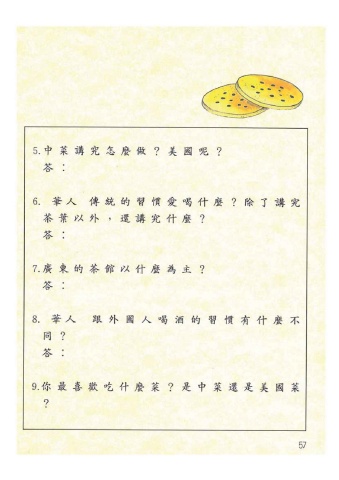 5.中菜講究怎麼做？美國呢？
答：
6. 華人 傳統的習慣愛喝什麼？除了講究
茶葉以外，還講究什麼？
答：
7.廣東的茶館以什麼為主？
答：
8. 華人 跟外國人喝酒的習慣有什麼不
同？
答：
9.你最喜歡吃什麼菜？是中菜還是美國菜
？
57